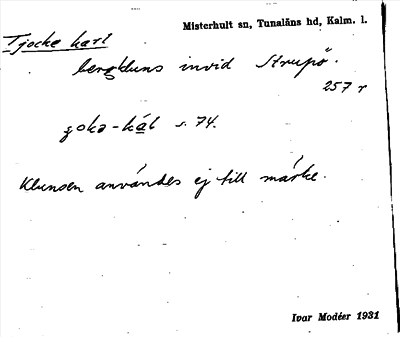 Misterhult sn, Tunaläns hd, Kalm. l.
Tjocke karl
bergkluns invid Strupö.
257 r
ʒokə-kál s. 74.
Klunsen användes ej till märke.
Ivar Modéer 1931